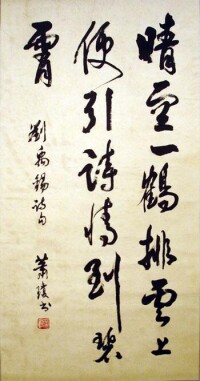 晴空一鶴排雲上
便引詩情到碧
霄
劉禹錫詩句
蕭瓊书